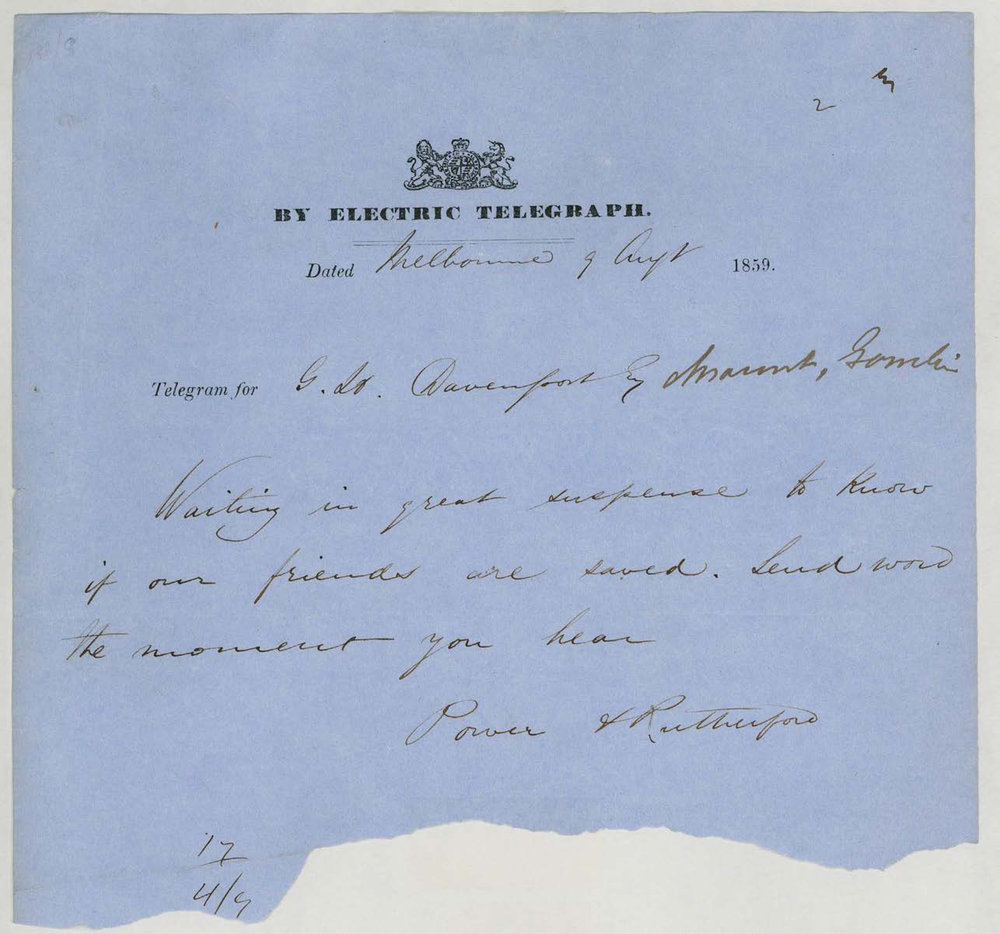 2
BY ELECTRIC TELEGRAPH.
Dated Melbourne 9 Augt 1859.
Telegram for G. Davenport Esq Mount,
Waiting in great suspense to know
if our friends are saved. Send word
the moment you hear
Power & Rutherford
17
4/9